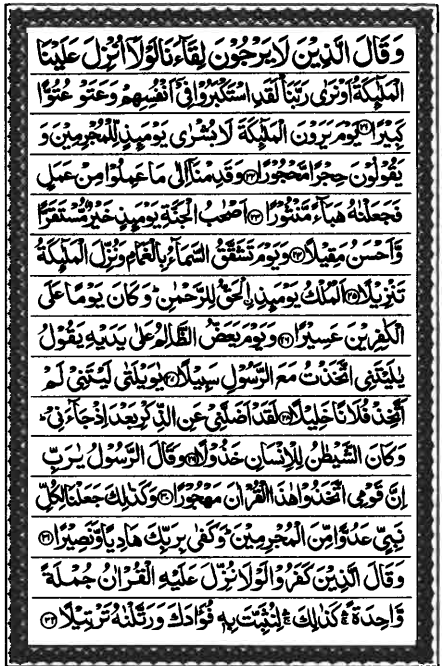 وَ قَالَ الَّذِيْنَ لَا يَرْجُوْنَ لِقَآءَنَا لَوْلَاۤ اُنْزِلَ عَلَيْنَا
الْمَلٰٓئِكَةُ اَوْ نَرٰى رَبَّنَا ؕ لَقَدِ اسْتَكْبَرُوْا فِيْۤ اَنْفُسِهِمْ وَ عَتَوْ عُتُوًّا
كَبِيْرًا ﴿۲۱﴾ يَوْمَ يَرَوْنَ الْمَلٰٓئِكَةَ لَا بُشْرٰى يَوْمَئِذٍ لِّلْمُجْرِمِيْنَ وَ
يَقُوْلُوْنَ حِجْرًا مَّحْجُوْرًا ﴿۲۲﴾ وَ قَدِمْنَاۤ اِلٰى مَا عَمِلُوْا مِنْ عَمَلٍ
فَجَعَلْنٰهُ هَبَآءً مَّنْثُوْرًا ﴿۲۳﴾ اَصْحٰبُ الْجَنَّةِ يَوْمَئِذٍ خَيْرٌ مُّسْتَقَرًّا
وَّ اَحْسَنُ مَقِيْلًا ﴿۲۴﴾ وَ يَوْمَ تَشَقَّقُ السَّمَآءُ بِالْغَمَامِ وَ نُزِّلَ الْمَلٰٓئِكَةُ
تَنْزِيْلًا ﴿۲۵﴾ اَلْمُلْكُ يَوْمَئِذِ ۟الْحَقُّ لِلرَّحْمٰنِ ؕ وَ كَانَ يَوْمًا عَلَى
الْكٰفِرِيْنَ عَسِيْرًا ﴿۲۶﴾ وَ يَوْمَ يَعَضُّ الظَّالِمُ عَلٰى يَدَيْهِ يَقُوْلُ
يٰلَيْتَنِي اتَّخَذْتُ مَعَ الرَّسُوْلِ سَبِيْلًا ﴿۲۷﴾ يٰوَيْلَتٰى لَيْتَنِيْ لَمْ
اَتَّخِذْ فُلَانًا خَلِيْلًا ﴿۲۸﴾ لَقَدْ اَضَلَّنِيْ عَنِ الذِّكْرِ بَعْدَ اِذْ جَآءَنِيْ ؕ
وَ كَانَ الشَّيْطٰنُ لِلْاِنْسَانِ خَذُوْلًا ﴿۲۹﴾ وَ قَالَ الرَّسُوْلُ يٰرَبِّ
اِنَّ قَوْمِي اتَّخَذُوْا هٰذَا الْقُرْاٰنَ مَهْجُوْرًا ﴿۳۰﴾ وَ كَذٰلِكَ جَعَلْنَا لِكُلِّ
نَبِيٍّ عَدُوًّا مِّنَ الْمُجْرِمِيْنَ ؕ وَ كَفٰى بِرَبِّكَ هَادِيًا وَّ نَصِيْرًا ﴿۳۱﴾
وَ قَالَ الَّذِيْنَ كَفَرُوْا لَوْلَا نُزِّلَ عَلَيْهِ الْقُرْاٰنُ جُمْلَةً
وَّاحِدَةً ۛۚ كَذٰلِكَ ۛۚ لِنُثَبِّتَ بِهٖ فُؤَادَكَ وَ رَتَّلْنٰهُ تَرْتِيْلًا ﴿۳۲﴾